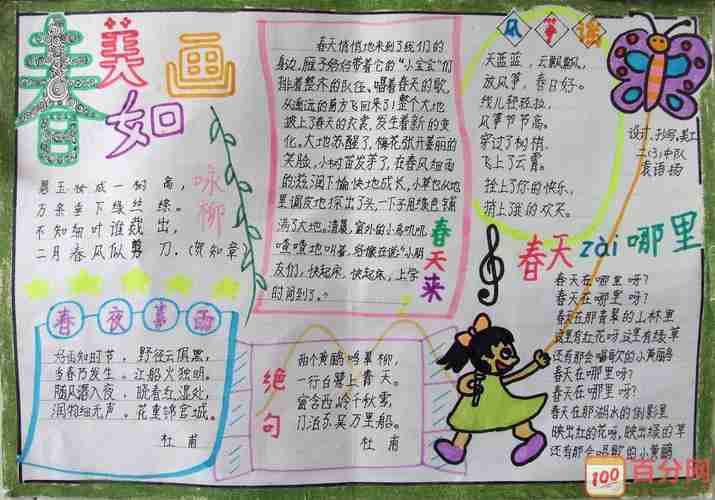 春美如画
咏柳
碧玉妆成一树高,
万条垂下绿丝绦。
不知细叶谁裁出,
二月春风似剪刀.(贺知章)
春夜喜雨
好雨知时节,野径云俱黑,
当春乃发生。江船火独明。
随风潜入夜,晓看红湿处,
润物细无声。花重锦官城。
杜甫
春天来
春天悄悄地来到了我们的
身边,燕子俗俗带着它的“小宝宝”们
排着整齐的队伍,唱着春天的歌,
从遥远的南方飞回来了!整个大地
披上了春天的衣裳,发生着新的变
化。大地苏醒了,梅花张开美丽的
笑脸,小树苗发芽了,在春风细雨
的滋润下愉快地成长,小草也从地
里调皮地探出了头,一下子用绿色铺
满了大地。清晨,窗外的小鸟叽叽
喳喳地叫着,好像在说“小朋
友们,快起床,快起床,上学
时间到了。”
绝句
两个黄鹂鸣翠柳,
一行白鹭上青天。
窗含西岭千秋雪,
门泊东吴万里船。
杜甫
风筝谣
天蓝蓝,云飘飘,
放风筝,春日好。
线儿轻轻拉,
风筝节节高。
穿过了树梢,
飞上了云霄。
拴上了你的快乐,
捎上了我的欢笑。
二(3)中队
春天zài哪里
春天在哪里呀?
春天在哪里呀?
春天在那青翠的山林里
这里有红花呀这里有绿草
还有那会唱歌的小黄鹂
春天在哪里呀?
春天在哪里呀?
春天在那湖水的倒影里
映出红的花呀,映出绿的草
还有那会唱歌的小黄鹂
100百分网